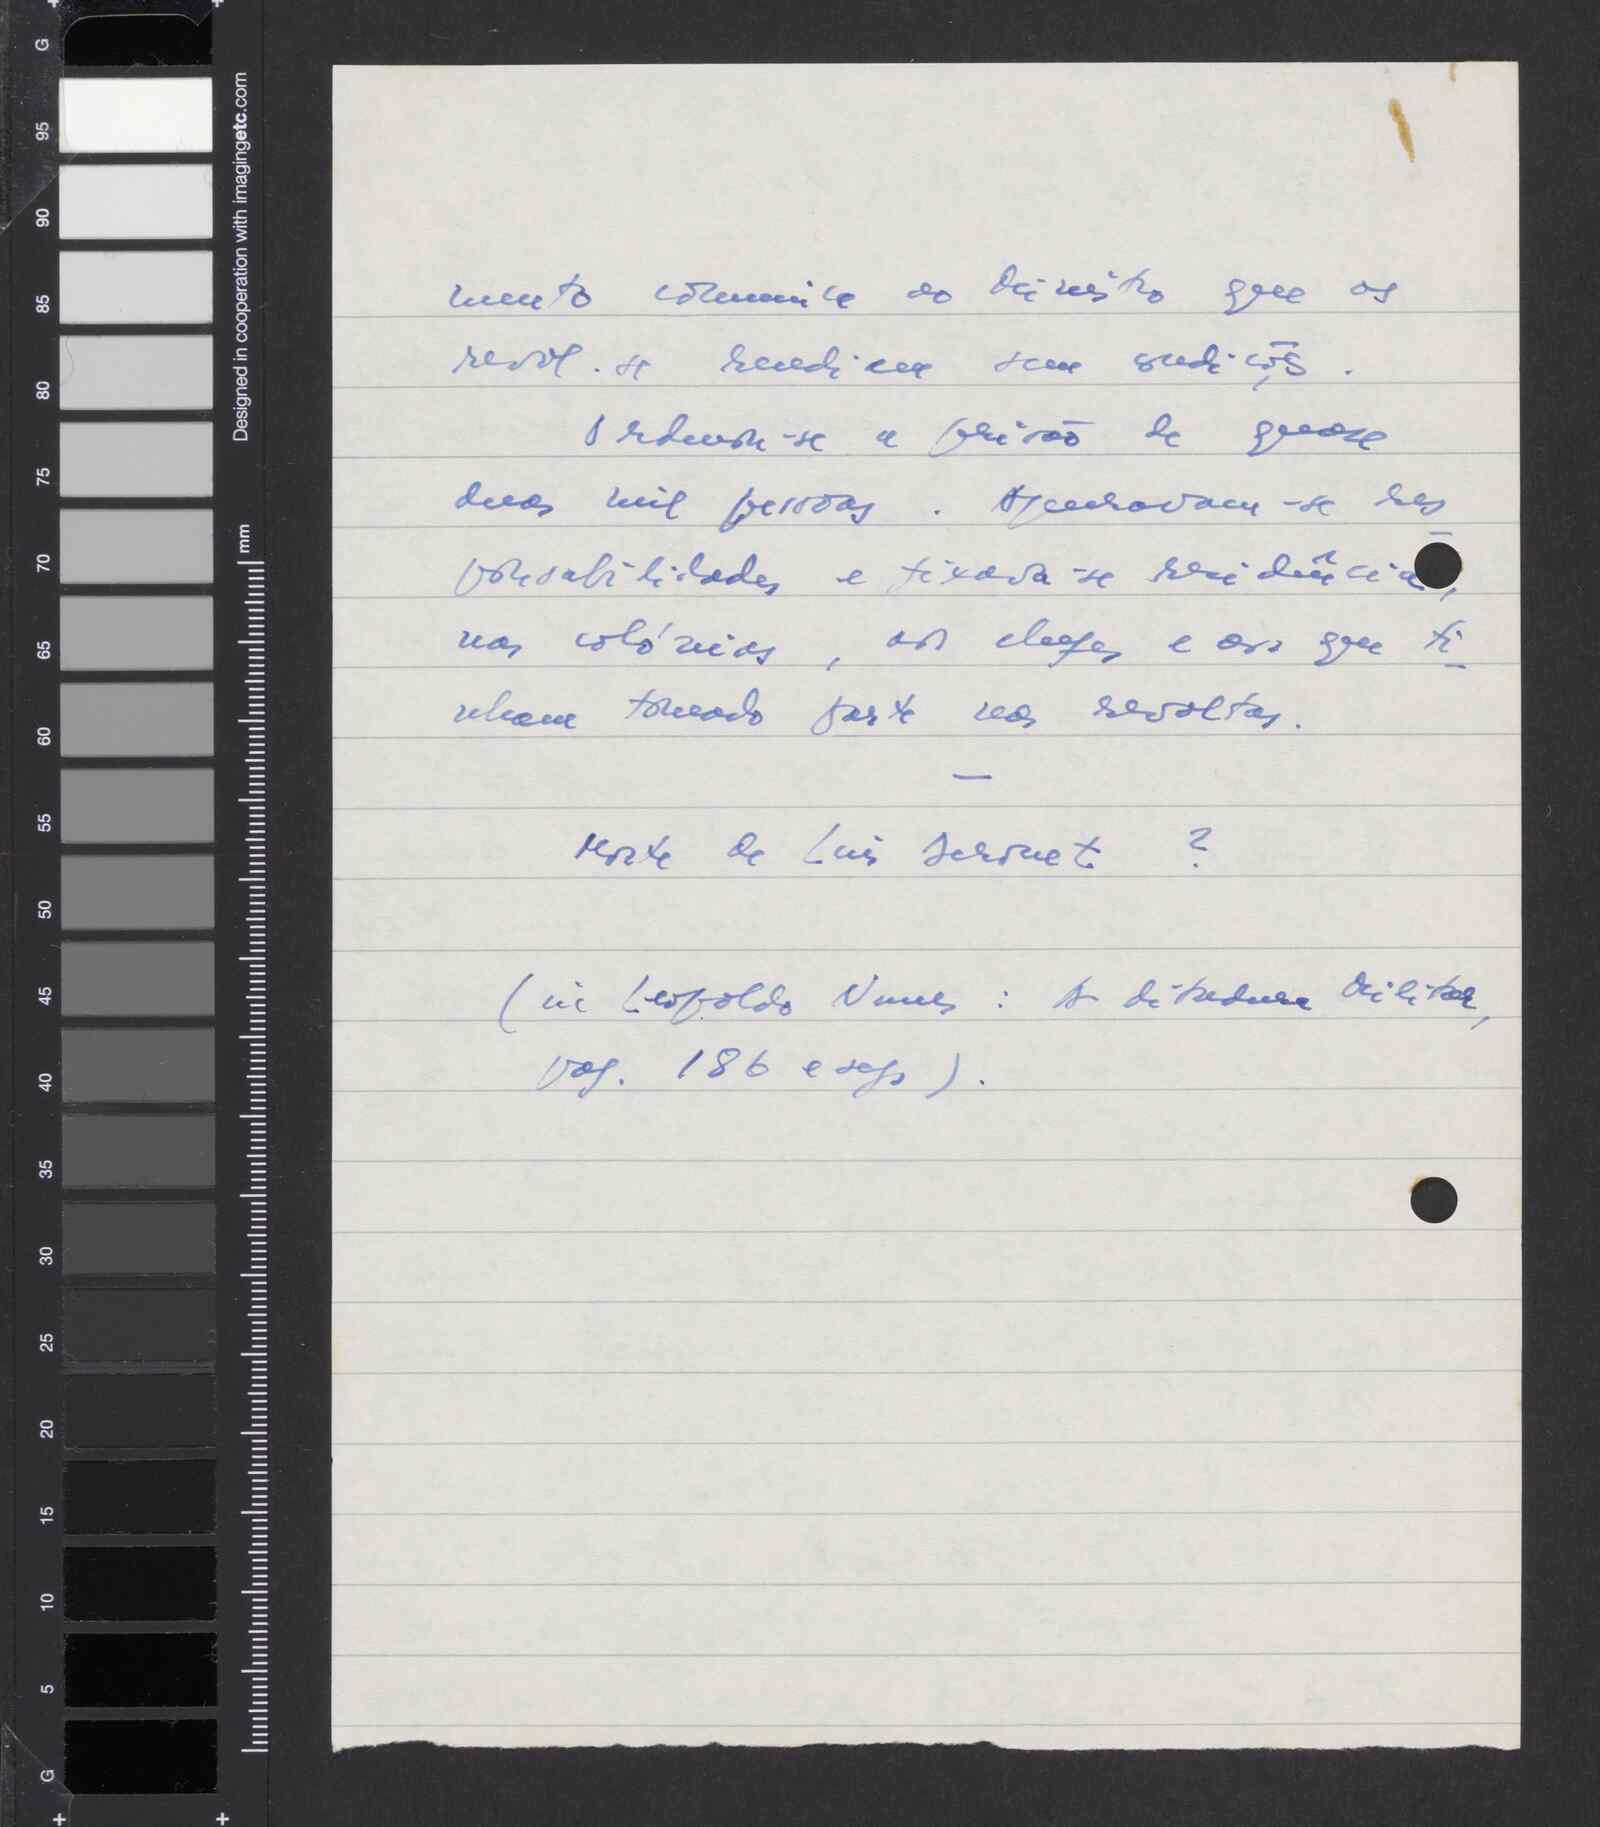 mento comunica ao Ministro que os
revol. se rendiam sem condições.
Ordenou-se a prisão de quase
duas mil pessoas. Apuravam-se res
ponsabilidades e fixava-se residência,
nas colónias, aos chefes e aos que ti
nham tomado parte nas revoltas.
—
Morte de Luís Derouet ?
(in Leopoldo Nunes : A ditadura Militar,
pag. 186 e segs).
Designed in cooperation with imagingetc.com
mm
G
95
90
85
80
75
70
65
60
55
50
45
40
35
30
25
20
15
10
5
G